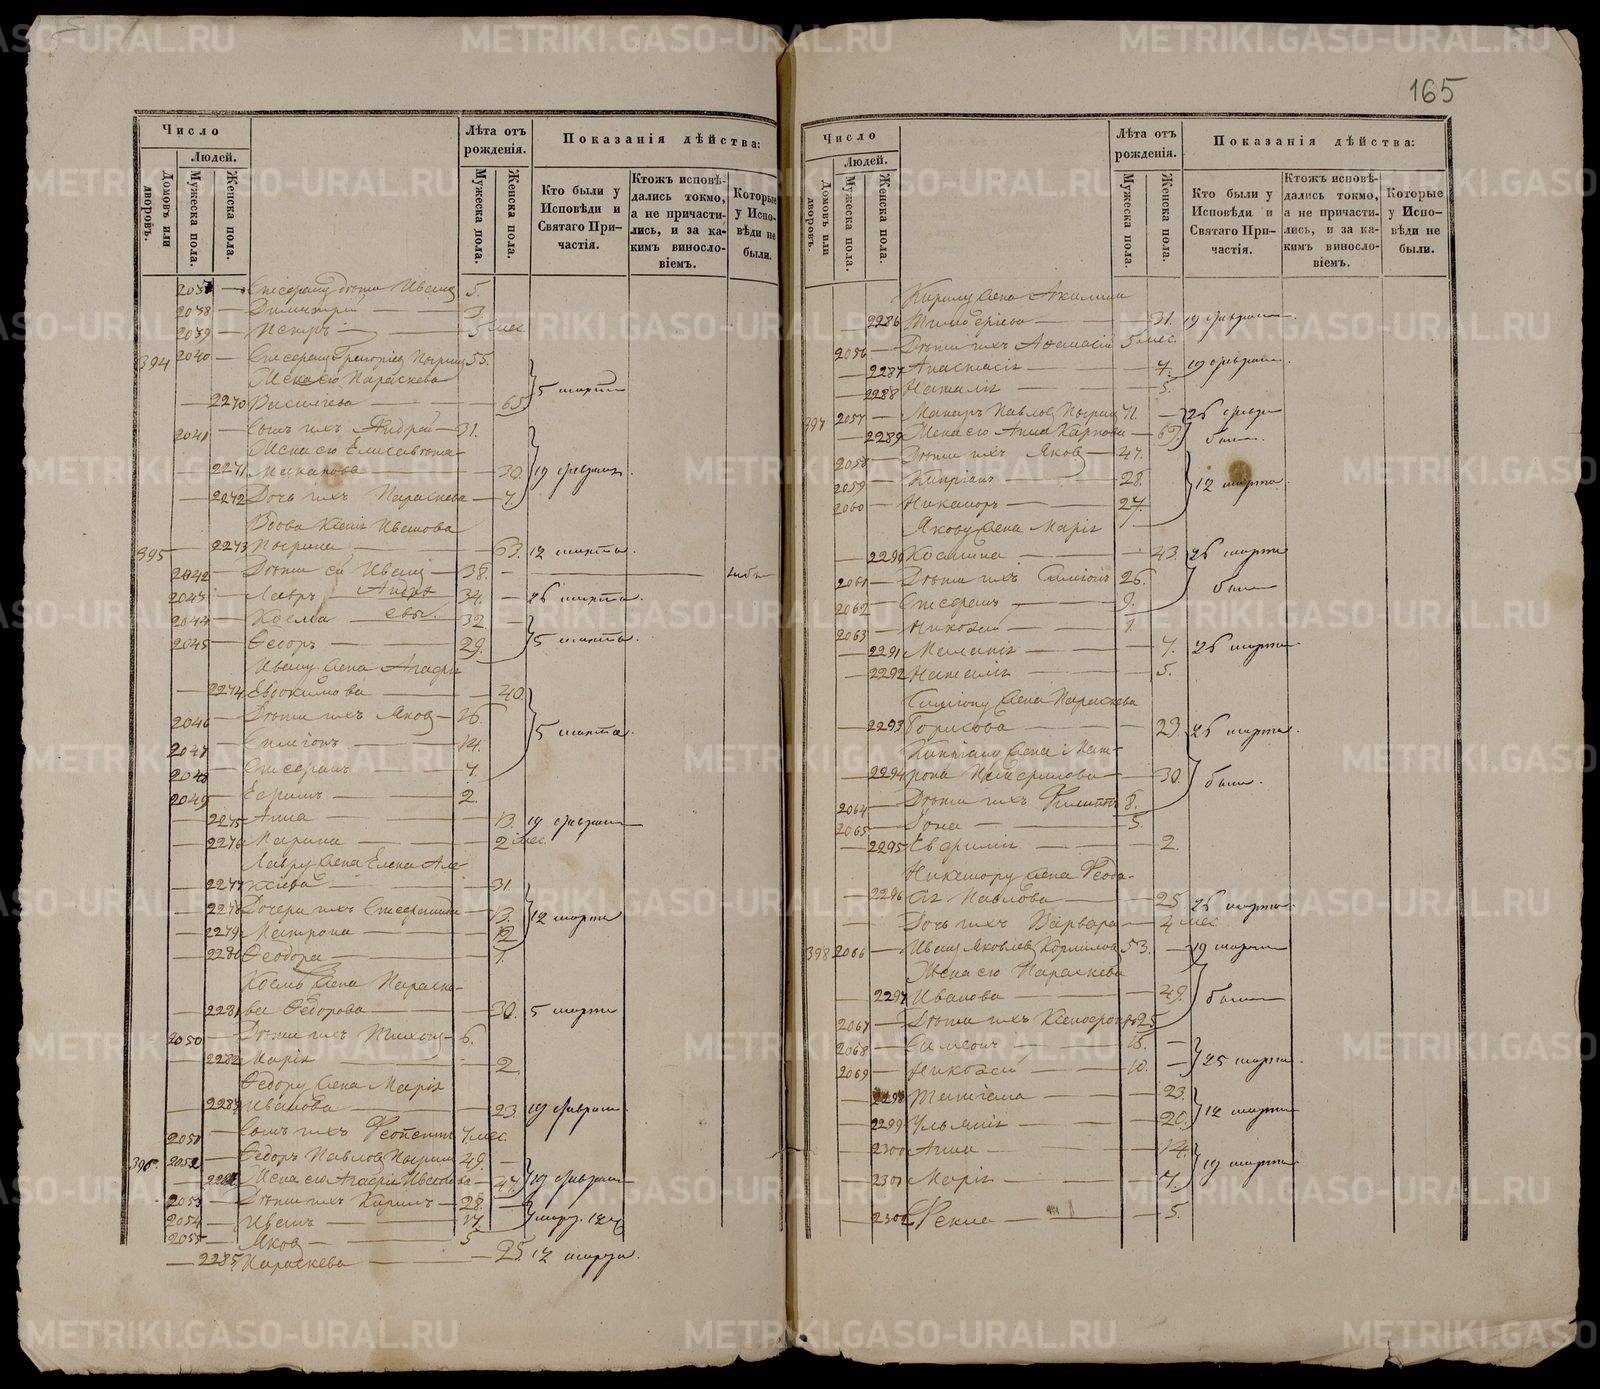 165
Число
Людей.
Домовъ или дворовъ.
Мужеска пола.
Женска пола.
Лѣта отъ рожденія.
Мужеска пола.
Женска пола.
Показанія дѣйства:
Кто были у Исповѣди и Святаго Причастія.
Ктожъ исповѣдались токмо, а не причастились, и за какимъ винословіемъ.
Которые у Исповѣди не были.
2037 — дѣти Иванъ 5.
2038 — Димитрій — 3.
2039 — Петръ — 5 мес
394 2040 — Григорьевъ 55.
Жена его Параскева
— 2270 Васильева — 65 5 марта
2041 — Сынъ ихъ Андрей — 31.
Жена его Елисавета
— 2271 Макарова — 30. 19 февраля.
— 2272 Дочь ихъ Параскева — 7.
Вдова Ксенія Иванова
395 — 2273 — 63. 12 марта.
2042 — Дѣти ея Иванъ — 38. —
2043 — Лавръ Андре 34. — 26 марта.
2044 — Косма евы. 32 —
2045 — Ѳедоръ — 29. 5 марта.
Ивану жена Агафья
— 2274 Евдокимова — 40.
2046 — Дѣти ихъ Яковъ — 16.
2047 — Симеонъ — 14. 5 марта.
2048 — 7.
2049 — Ефимъ — 2.
— 2275 Анна — 13. 19 февраля
— 2276 Марина — 2 мес.
Лавру жена Елена Але
— 2277 ксіева — 31.
— 2278 Дочери ихъ — 13. 12 марта
— 2279 Матрона — 12
— 2280 Ѳеодора — 1.
Космѣ жена Параске-
— 2281 ва Ѳедорова — 30. 5 марта
2050 — Дѣти ихъ Тихонъ — 6.
— 2282 Марія — 2
Ѳедору жена Марія
— 2283 Иванова — 23. 19 февраля.
2051 — Сынъ ихъ 7 мес.
396 2052 — Ѳедоръ Павловъ 49. —
— 2284 Жена его Агафья Иванова — 47. 19 февраля
2053 — Дѣти ихъ Кирилъ — 28. —
2054 — Иванъ — 17.
2055 — Яковъ — 5
— 2285 Параскева — 25. 12 марта.
Число
Людей.
Домовъ или дворовъ.
Мужеска пола.
Женска пола.
Лѣта отъ рожденія.
Мужеска пола.
Женска пола.
Показанія дѣйства:
Кто были у Исповѣди и Святаго Причастія.
Ктожъ исповѣдались токмо, а не причастились, и за какимъ винословіемъ.
Которые у Исповѣди не были.
Кирилу жена Акилина
— 2286 — 31. 19 февраля.
2056 — Дѣти ихъ Афанасій 5 мес.
— 2287 Анастасія — 7. 19 февраля.
— 2288 Наталія — 5.
397 2057 — Макаръ Павловъ 71. — 26 февра
— 2289 Жена его Анна Карпова — 69.
2058 — Дѣти ихъ Яковъ — 47.
2059 — Кипріанъ — 28. 12 марта.
2060 — Никаноръ — 27.
Якову жена Марія
— 2290 Космина — 43. 26 марта
2061 — Дѣти ихъ Симеонъ 26.
2062 — 9.
2063 — Николай — 1.
— 2291 Меланія — 7. 26 марта
— 2292 Наталія — 5.
Симеону жена Параскева
— 2293 Борисова — 23. 26 марта.
Кипріану жена Мат-
— 2294 рона — 30.
2064 — Дѣти ихъ Филиппъ 8.
2065 — Іона — 5.
— 2295 Евфимія — 2.
Никанору жена Ѳеодо-
— 2296 Павлова — 25. 26 марта.
— Дочь ихъ Варвара — 4 мес
398 2066 — Иванъ Яковлевъ Корниловъ 53. — 19 марта
Жена его Параскева
— 2297 Иванова — 49.
2067 — Дѣти ихъ 25.
2068 — Симеонъ — 15. —
2069 — Николай — 10. — 25 марта.
— 2298 Татіана — 23.
— 2299 Ульянія — 20. 12 марта
— 2300 Анна — 14.
— 2301 Марія — 7. 19 марта
— 2302 Ѳекла — 5.
METRIKI.GASO-URAL.RU